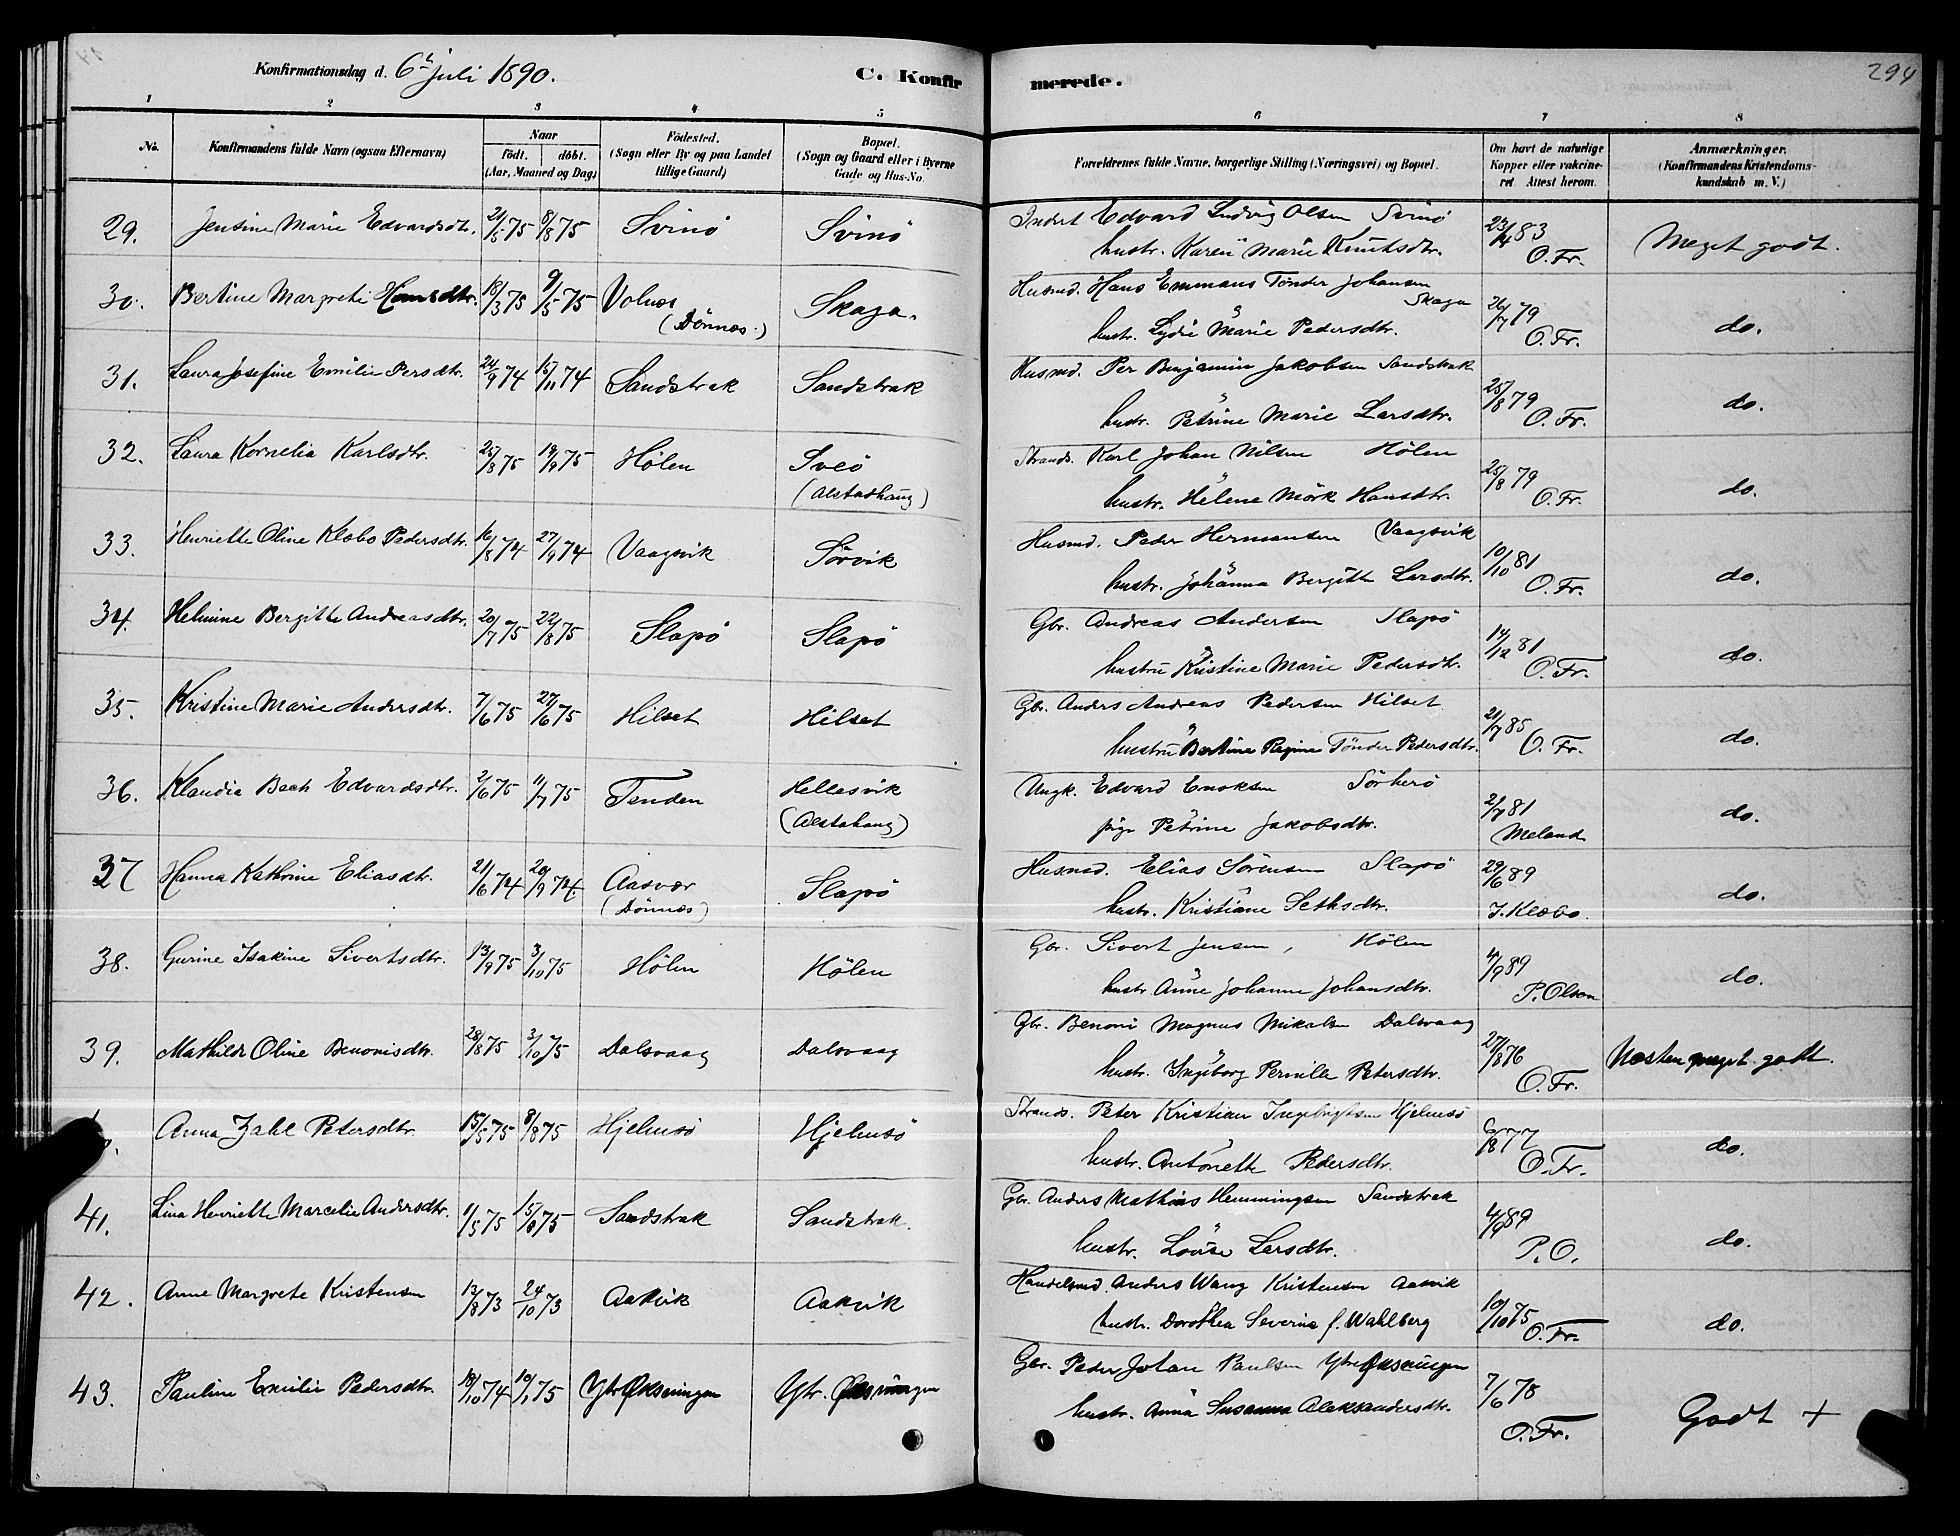 Konfirmationsdag d. 6te juli 1890. C. Konfirmerede. 294
1 2 3 4 5 6 7 8
No. Konfirmandens fulde Navn (ogsaa Efternavn) Naar födt. döbt. (Aar, Maaned og Dag) Födested. (Sogn eller By og paa Landet tillige Gaard) Bopæl. (Sogn og Gaard eller i Byerne Gade og Hus-No. Forældrenes fulde Navne, borgerlige Stilling (Næringsvei) og Bopæl. Om havt de naturlige Kopper eller vakcineret Attest herom. Anmærkninger. (Konfirmandens Kristendomskundskab m. V.)
29. Jensine Marie Edvardsdtr. 21/5 75 8/8 75 Svinö Svinö Inderst Edvard Ludvig Olsen Svinö 23/4 83
hustr. Karen Marie Knutsdtr. O. Fr. Meget godt.
30. Bertine Margrete Hansdtr. 18/3 75 9/5 75 Volnes (Dönnæs.) Skaga. Husmd. Hans Emmaus Tönder Johansen Skaga 26/7 79
hustr. Lydie Marie Pedersdtr. O. Fr. do.
31. Laura Josefine Emilie Persdtr. 24/9 74 15/11 74 Sandstrak Sandstrak Husmd. Per Benjamin Jakobsen Sandstrak 25/8 79
hustr. Petrine Marie Larsdtr. O. Fr. do.
32. Laura Kornelia Karlsdtr. 25/8 75 19/9 75 Hölen Sveö (Alstadhaug) Strands. Karl Johan Nilsen Hölen 25/8 79
hustr. Helene Mörk Hansdtr. O. Fr. do.
33. Henriette Oline Klæbo Pedersdtr. 16/8 74 27/9 74 Vaagsvik Sörvik Husmd. Peder Hermansen Vaagsvik 10/10 81
hustr. Johanna Bergitte Larsdtr. O. Fr. do.
34. Helmine Bergitte Andreasdtr. 20/7 75 22/8 75 Slapö Slapö Gbr. Andreas Andersen Slapö 14/12 81
hustru Kristine Marie Pedersdtr. O. Fr. do.
35. Kristine Marie Andersdtr. 7/6 75 27/6 75 Hilset Hilset Gbr. Anders Andreas Pedersen Hilset 21/7 85
hustru Bertine Regine Tönder Pedersdtr. O. Fr. do.
36. Klaudia Bech Edvardsdtr. 2/6 75 11/7 75 Tenden Hellesvik (Alstahaug) Ungk. Edvard Enoksen Sörherö 2/7 81
pige Petrine Jakobsdtr. Meland do.
37 Hanna Kathrine Eliasdtr. 21/6 74 20/9 74. Aasvær (Dönnæs) Slapö Husmd. Elias Sörensen Slapö 29/6 89
hustr. Kristiane Sethsdtr. J. Klæbo. do.
38. Gurine Isakine Sivertsdtr. 13/9 75 3/10 75 Hölen Hölen Gbr. Sivert Jensen, Hölen 4/9 89
hustr Anne Johanna Johansdtr. P. Olsen do.
39. Mathilde Oline Benonisdtr. 28/8 75 3/10 75 Dalsvaag Dalsvaag Gbr. Benoni Magnus Mikalsen Dalsvaag 27/8 76
hustr. Ingeborg Pernilla Petersdtr. O. Fr. Næsten meget godt.
Anna Zahl Petersdtr. 15/5 75 8/8 75 Hjelmsö Hjelmsö Strands. Peter Kristian Ingebrigtsen Hjelmsö 6/8 77
hustr. Antonette Pedersdtr. O. Fr. do.
41. Lina Henriette Marcelie Andersdtr. 11/5 75 15/8 75 Sandstrak Sandstrak. Gbr. Anders Mathias Hemmingsen Sandstrak 4/9 89
hustr. Lovise Larsdtr. P. O. do.
42. Anne Margrete Kristensen 13/8 73 24/10 73 Aakvik Aakvik Handelsmd. Anders Wang Kristensen Aasvik 10/10 75
hustr. Dorothea Severine f. Wahlberg O. Fr. do.
43. Pauline Emilie Pedersdtr. 18/10 74 10/1 75 Ytr Öksningen Ytr. Öksningen Gbr. Peder Johan Paulsen Ytre Öksningen 7/6 78
hustr. Anna Susanna Aleksandersdtr. O. Fr. Godt +